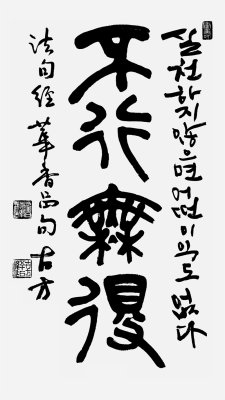 실천하지 않으면 어떤 이익도 없다
不行無得
法句經 華香品 句 古方